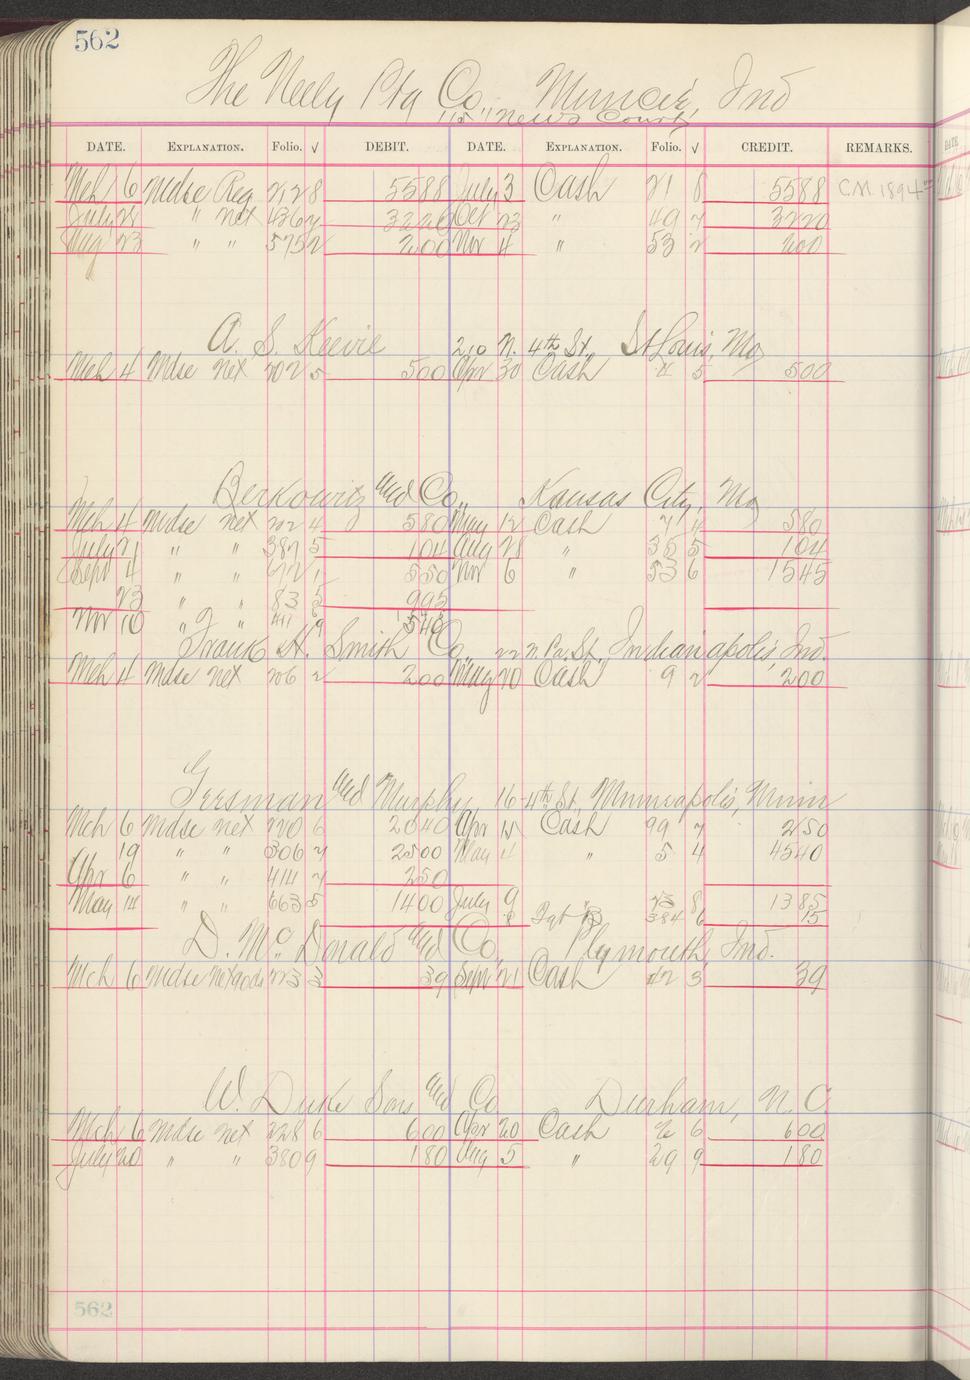 562
The Neely Ptg Co., Muncie, Ind
"15" News Court
DATE. EXPLANATION. Folio. √ DEBIT. DATE. EXPLANATION. Folio. √ CREDIT. REMARKS.
Mch 16 Mdse Reg 212 8 5588 July 3 Cash 21 8 5588 C.M. 1894
July 28 " net 436 7 3220 Oct 23 " 49 7 3220
Aug 23 " " 575 2 200 Nov 4 " 53 2 200
A. S. Keevil 210 N. 4th St., St Louis, Mo
Mch 4 Mdse net 202 5 500 Apr 30 Cash 5 500
Berkowitz and Co., Kansas City, Mo
Mch 4 Mdse net 202 4 580 May 12 Cash 7 4 580
July 21 " " 387 5 104 Aug 28 " 35 5 104
Sept 4 " " 550 Nov 6 " 53 6 1545
23 " " 83 5 995
Nov 10 " " 9 540
Frank H. Smith Co., 22 N. Pa. St., Indianapolis, Ind.
Mch 4 Mdse net 206 2 200 May 20 Cash 9 2 200
Gersman and Murphy, 16-4th St., Minneapolis, Minn
Mch 6 Mdse net 220 6 2040 Apr 14 Cash 99 7 250
19 " " 306 7 2500 May 4 " 5 4 4540
Apr 6 " " 414 7 250
May 14 " " 663 5 1400 July 9 8 1385
384 6 15
D. McDonald and Co., Plymouth, Ind.
Mch 6 Mdse net goods 223 3 39 Sept 21 Cash 42 3 39
W. Duke Sons and Co. Durham, N. C.
Mch 6 Mdse net 228 6 600 Apr 20 Cash 2 6 600
July 20 " " 380 9 180 Aug 5 " 29 9 180
562